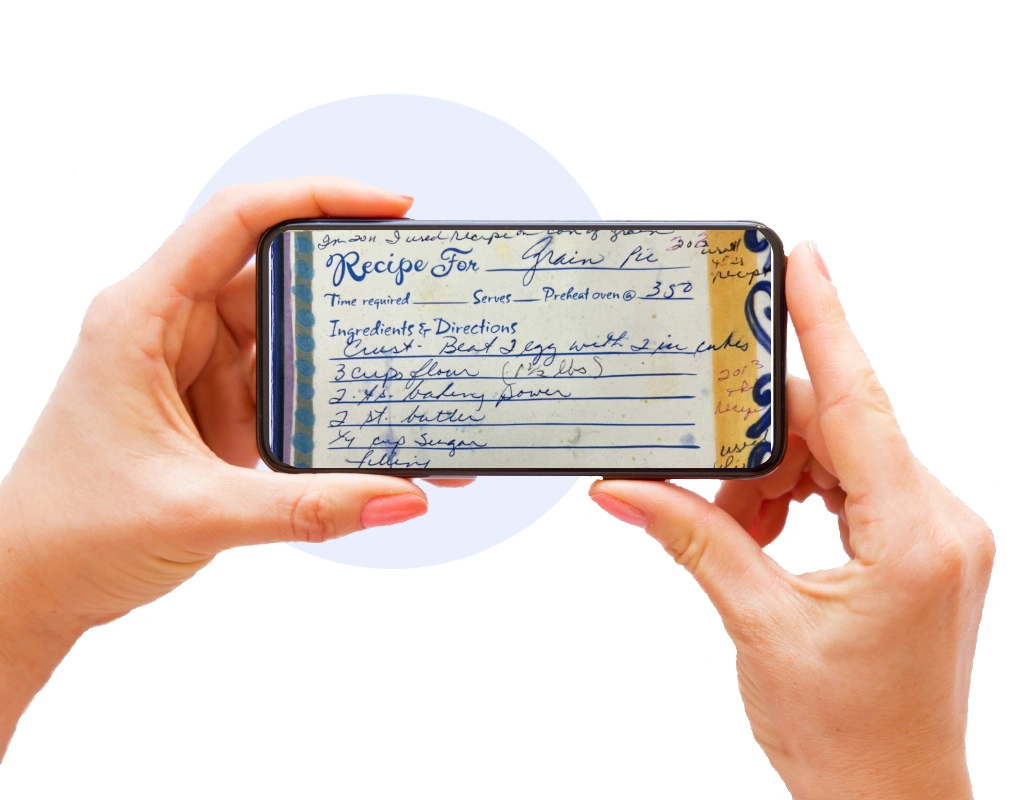 In 2011 I used recipe on can of grain
Recipe For Grain Pie
2013 used
this
recipe
Time required Serves Preheat oven @ 350
Ingredients & Directions
Crust - Beat 2 egg with 2 in cubes
3 cups flour (1 1/2 lbs)
2 ts. baking power
2 st. butter
1/4 cup Sugar
filling
2013
recipe
used